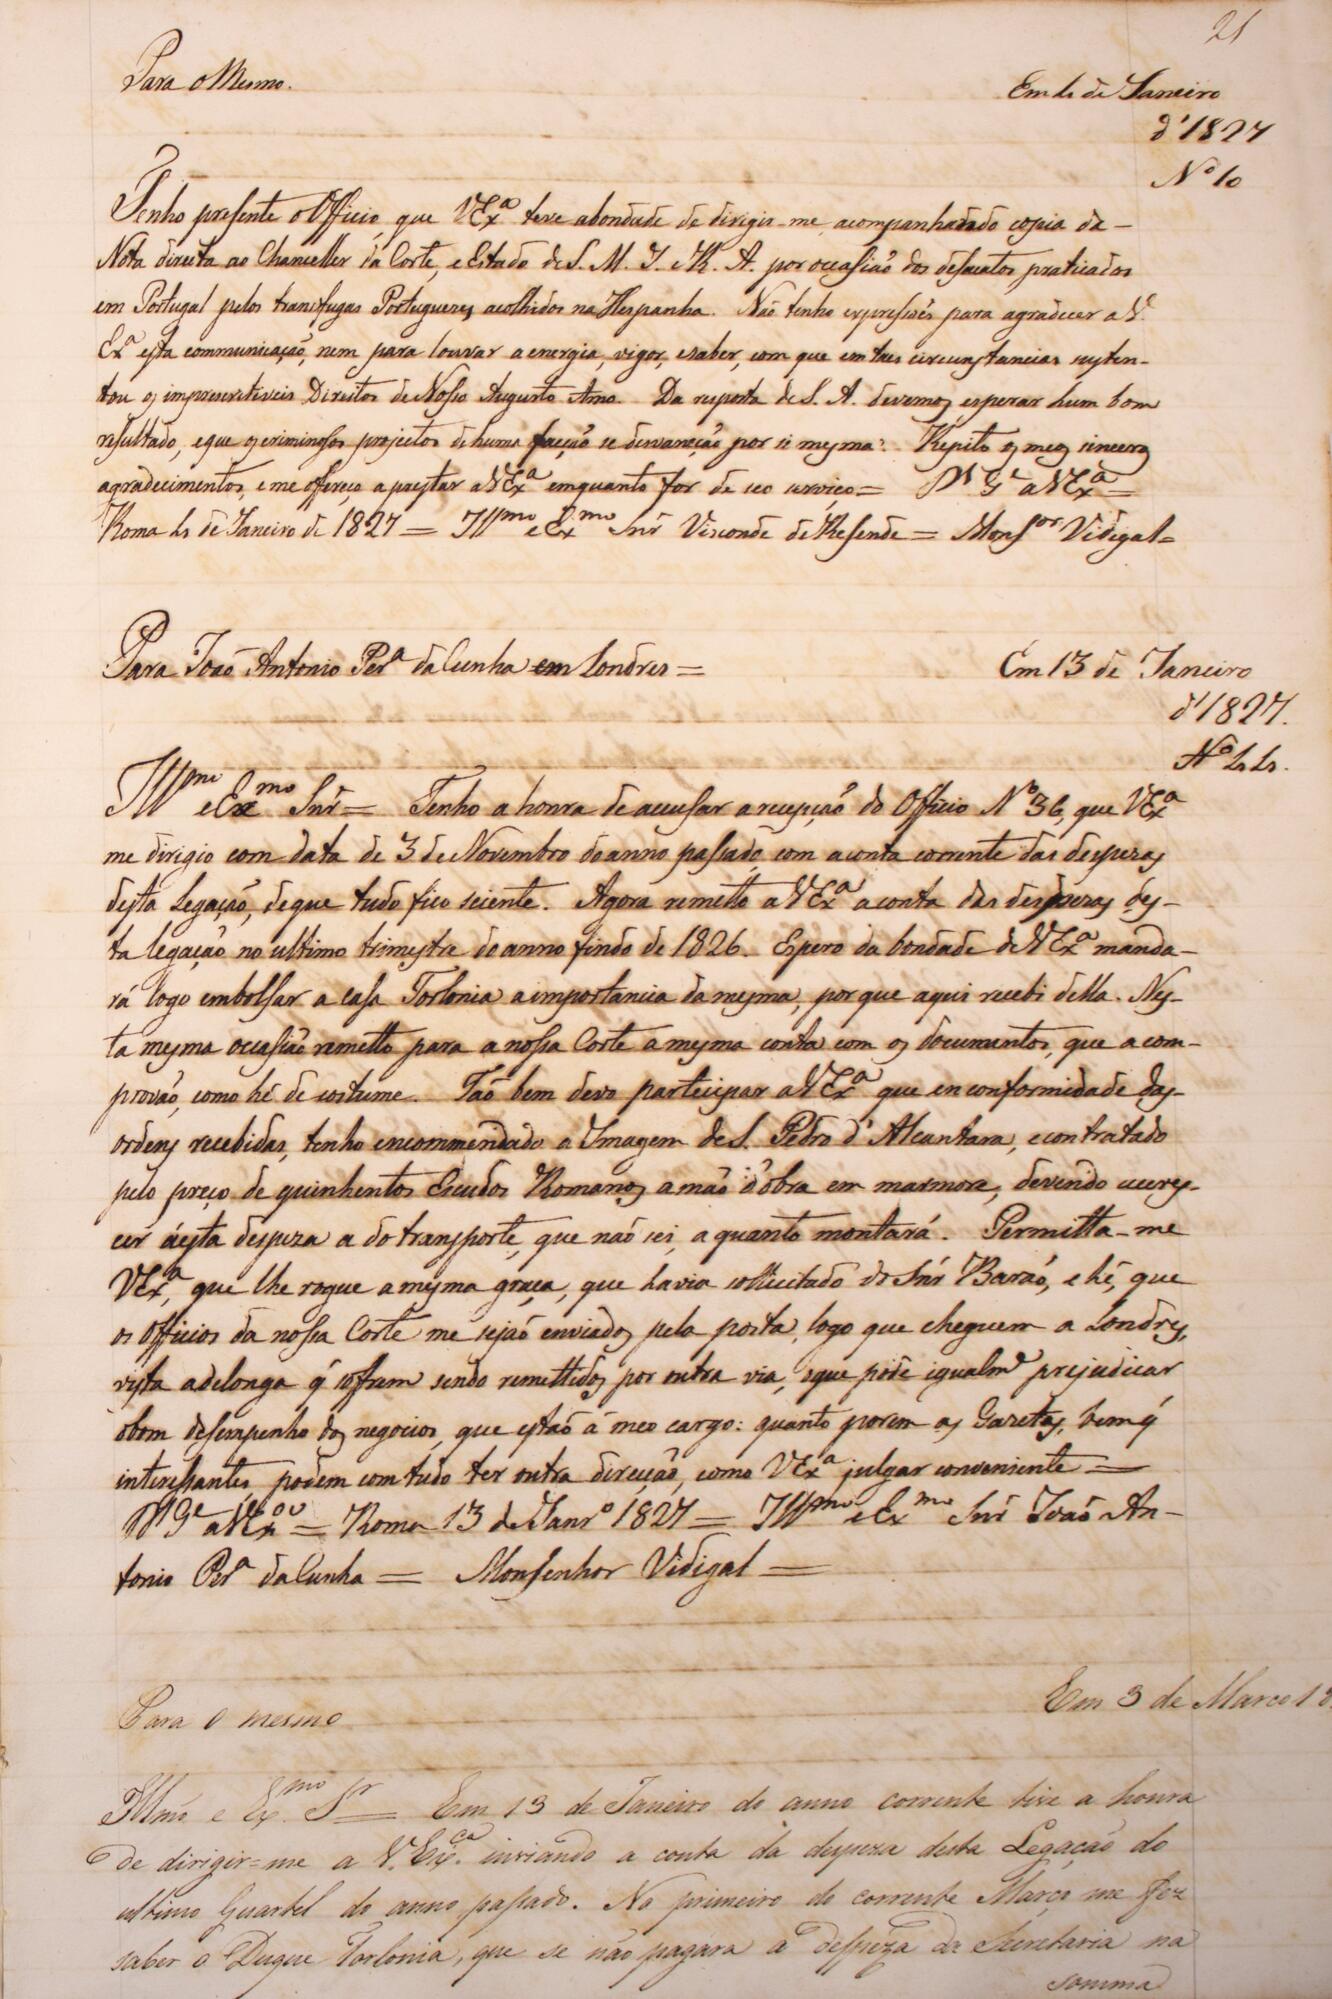 21
Para o Mesmo.
Em 4 de Janeiro
d'1827
Nº 10
Tenho presente o Officio, que VExª teve abondade de dirigir-me, acompanhado do copia da
Nota directa ao Chanceller da Corte, e Estado de S. M. I. e R. A. por occasião dos desacatos praticados
em Portugal pelos transfugas Portuguezes acolhidos na Hespanha. Não tenho expressões para agradecer a V.
Exª esta communicação, nem para louvar a energia, vigor, e saber, com que em taes circunstancias susten-
tou os imprescretiveis Direitos de Nosso Augusto Amo. Da resposta de S. A. devemos esperar hum bom
resultado, e que os criminosos projectos de huma facção se desvaneção por si mesma: Repito os meos sinceros
agradecimentos, e me offereço a prestar a VExª emquanto for de seo serviço = Ds Ge a VExª =
Roma 4 de Janeiro de 1827 = Illmo e Exmo Snr Visconde de Resende = Monsor Vidigal =
Para João Antonio Perª da Cunha em Londres =
Em 13 de Janeiro
d'1827.
Nº 44.
Illmo e Exmo Snr = Tenho a honra de accusar a recepção do Officio Nº 36, que VExª
me dirigio com data de 3 de Novembro do anno passado, com a conta corrente das despezas
desta Legação, de que tudo fico sciente. Agora remetto a VExª a conta das despezas des-
ta legação no ultimo trimestre do anno findo de 1826. Espero da bondade de VExª manda-
rá logo embolsar a casa Torlonia a importancia da mesma, por que aqui recebi della. Nes-
ta mesma occasião remetto para a nossa Corte a mesma conta com os documentos, que a com-
provão, como hé de costume. Tão bem devo participar a VExª que en conformidade das
ordens recebidas, tenho encommendado a Imagem de S. Pedro d'Alcantara, e contratado
pelo preço de quinhentos Escudos Romanos a mão d'obra em marmore, devendo accres-
cer á esta despeza a do transporte, que não sei, a quanto montará. Permitta-me
VExª, que lhe rogue a mesma graça, que havia sollicitado do Snr Barão, e hé, que
os Officios da nossa Corte me sejão enviados pela posta, logo que cheguem a Londres,
vista a delonga q̃ sofrem sendo remettidos por outra via, o que póde igualme prejudicar
o bom desempenho dos negocios, que estão á meo cargo: quanto porem as Gazetas, bem q̃
interessantes, podem com tudo ter outra direcção, como VExª julgar conveniente =
Ds Ge a VExª = Roma 13 de Janrº 1827 = Illmo e Exmo Snr João An-
tonio Perª da Cunha = Monsenhor Vidigal =
Para o mesmo
Em 3 de Março 18
Illmo e Exmo Sr = Em 13 de Janeiro do anno corrente tive a honra
de dirigir=me a V. Exca. inviando a conta da despeza desta Legação do
ultimo Quartel do anno passado. No primeiro do corrente Março me fez
saber o Duque Torlonia, que se não pagara a despeza da Secretaria na
somma